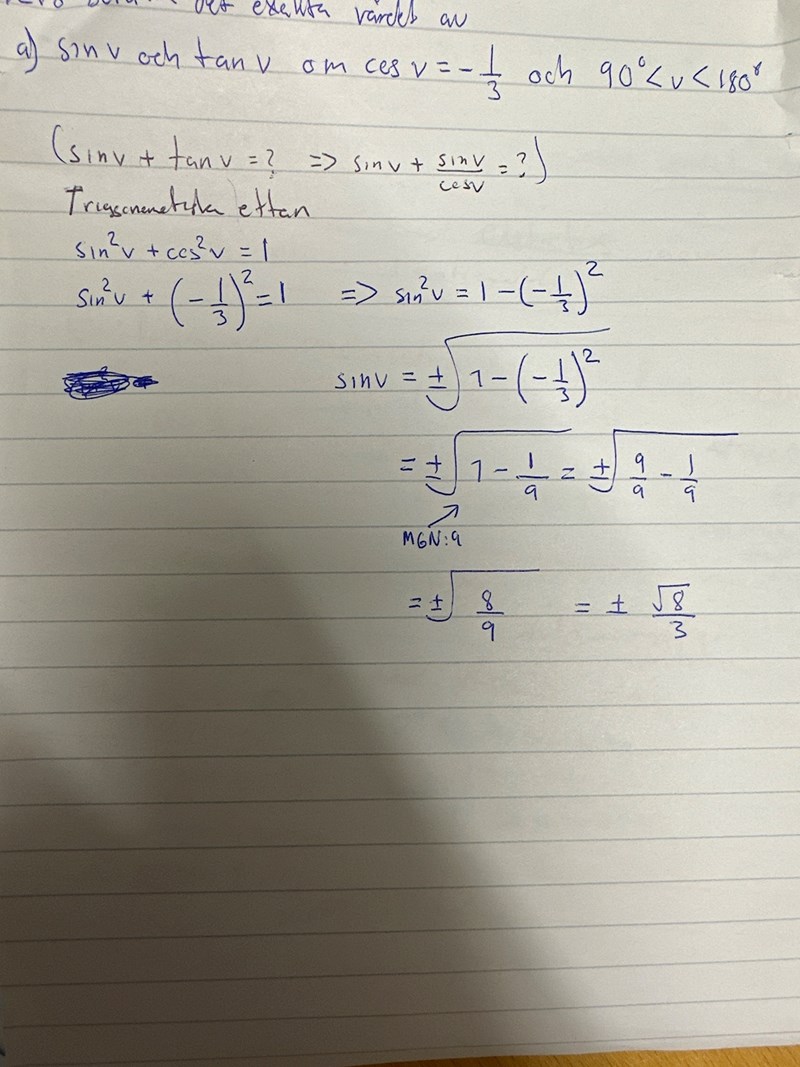 det exakta värdet av
a) sin v och tan v om cos v = -1/3 och 90° < v < 180°
(sin v + tan v = ? => sin v + sin v/cos v = ?)
Trigonometriska ettan
sin²v + cos²v = 1
sin²v + (-1/3)² = 1 => sin²v = 1 - (-1/3)²
sin v = ± √(1 - (-1/3)²)
= ± √(1 - 1/9) = ± √(9/9 - 1/9)
MGN: 9
= ± √(8/9) = ± √8/3